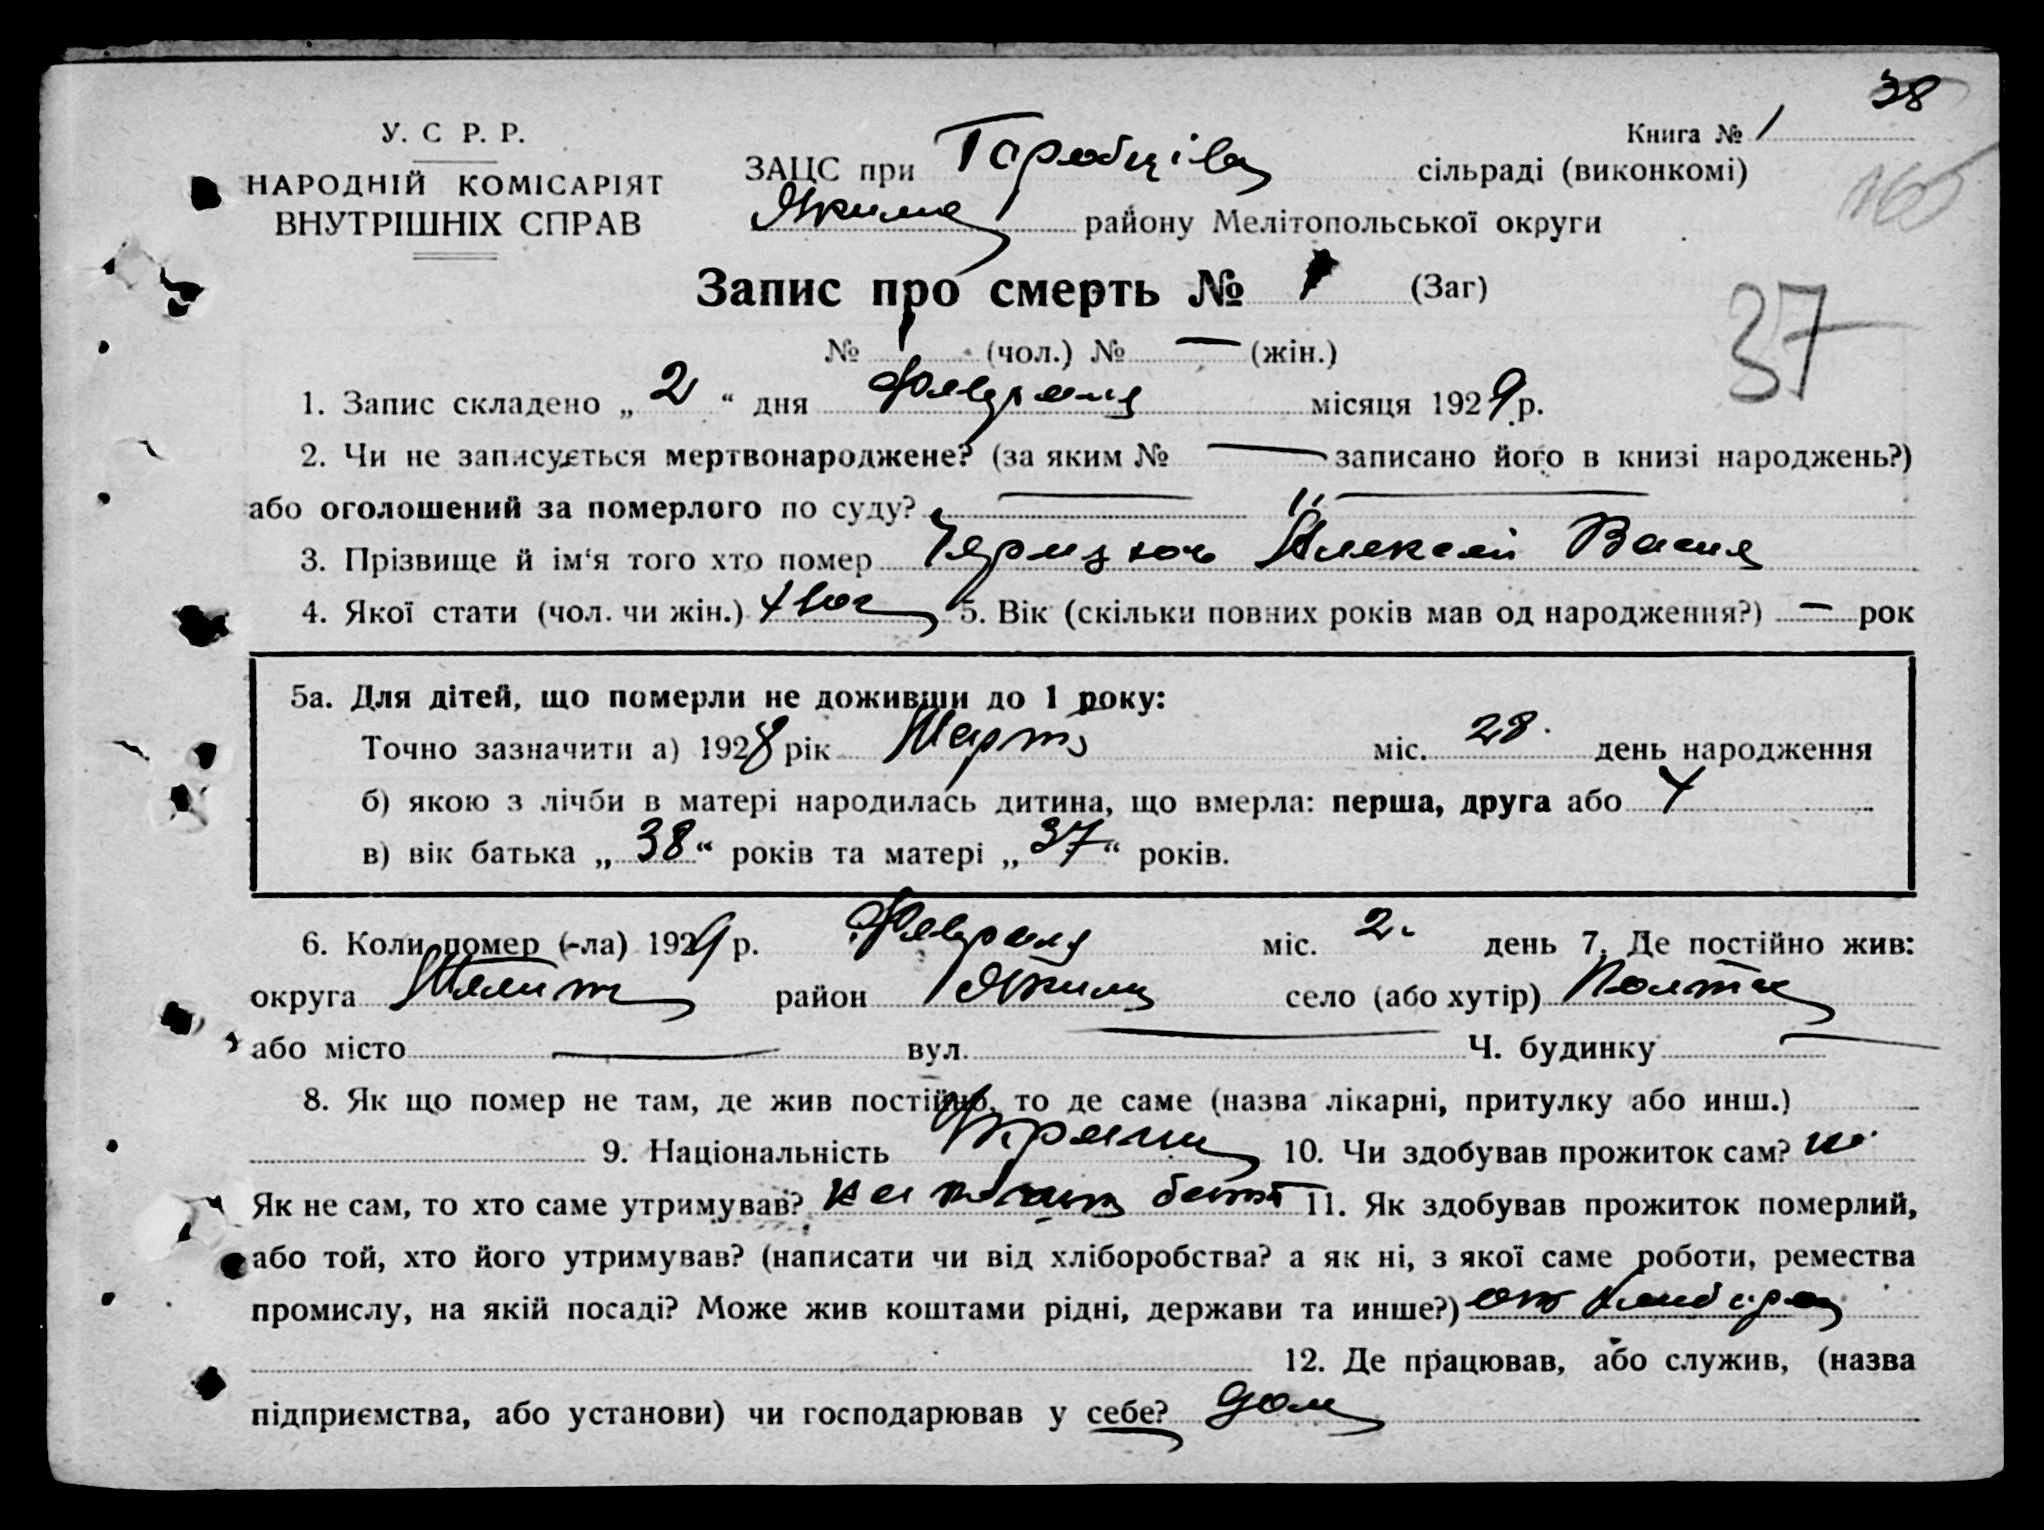 38
У. С Р. Р.
Книга № 1
НАРОДНІЙ КОМІСАРІЯТ
ВНУТРІШНІХ СПРАВ
ЗАЦС при сільраді (виконкомі)
165
Яким району Мелітопольської округи
Запис про смерть № 1 (Заг)
37
№ 1 (чол.) № — (жін.)
1. Запис складено „ 2 “ дня Февраля місяця 1929 р.
2. Чи не записується мертвонароджене? (за яким № — записано його в книзі народжень?)
або оголошений за померлого по суду? —
3. Прізвище й ім‘я того хто помер Алексей Васил
4. Якої стати (чол. чи жін.) чол 5. Вік (скільки повних років мав од народження?) — рок
5а. Для дітей, що померли не доживши до 1 року:
Точно зазначити а) 1928 рік Март міс. 28 день народження
б) якою з лічби в матері народилась дитина, що вмерла: перша, друга або 4
в) вік батька „ 38 “ років та матері „ 37 “ років.
6. Коли помер (-ла) 1929 р. Февраля міс. 2 день 7. Де постійно жив:
округа Мелит район Яким село (або хутір) Полтав
або місто — вул. — Ч. будинку —
8. Як що помер не там, де жив постійно, то де саме (назва лікарні, притулку або инш.)
9. Національність Украин 10. Чи здобував прожиток сам? ні
Як не сам, то хто саме утримував? 11. Як здобував прожиток померлий,
або той, хто його утримував? (написати чи від хліборобства? а як ні, з якої саме роботи, ремества
промислу, на якій посаді? Може жив коштами рідні, держави та инше?) от хлебороб
12. Де працював, або служив, (назва
підприємства, або установи) чи господарював у себе? дом